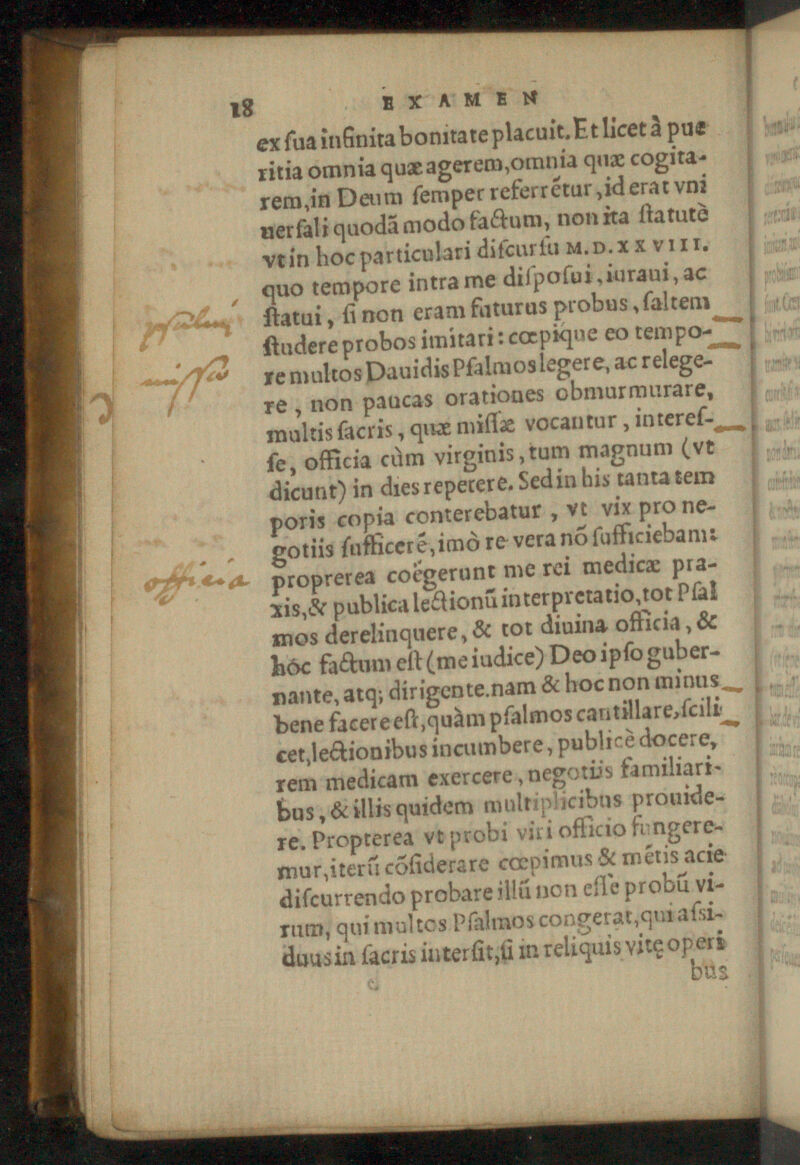 18 EXAMEN
ex ſua infinita bonitate placuit. Et licet à pue
ritia omnia quæ agerem, omnia quæ cogita-
rem, in Deum ſemper referrētur, id erat vni
uerſali quodã modo factum, non ita ſtatutè
vt in hoc particulari diſcurſu M.D.XXVIII.
quo tempore intra me diſpoſui, iuraui, ac
ſtatui, ſi non eram futurus probus, ſaltem
ſtudere probos imitari: cœpique eo tempo-
re multos Dauidis Pſalmos legere, ac relege-
re, non paucas orationes obmurmurare,
multis ſacris, quæ miſſæ vocantur, intereſ-
ſe, officia cùm virginis, tum magnum (vt
dicunt) in dies repetere. Sed in his tanta tem
poris copia conterebatur, vt vix pro ne-
gotiis ſufficerē, imò re vera nõ ſufficiebam:
proprerea coëgerunt me rei medicæ pra-
xis, & publica lectionũ interpretatio, tot Pſal
mos derelinquere, & tot diuina officia, &
hóc factum eſt (me iudice) Deo ipſo guber-
nante, atq; dirigente. nam & hoc non minus
bene facere eſt, quàm pſalmos cantillare, ſcili
cet, lectionibus incumbere, publicè docere,
rem medicam exercere, negotiis familiari-
bus, & illis quidem multiplicibus prouide-
re. Propterea vt probi viri officio fungere-
mur, iterũ cõſiderare cœpimus & mētis acie
diſcurrendo probare illũ non eſſe probũ vi-
rum, qui multos Pſalmos congerat, qui aſsi-
duus in ſacris interſit, ſi in reliquis vitę operi
bus
pſalmi
miſſas
officia